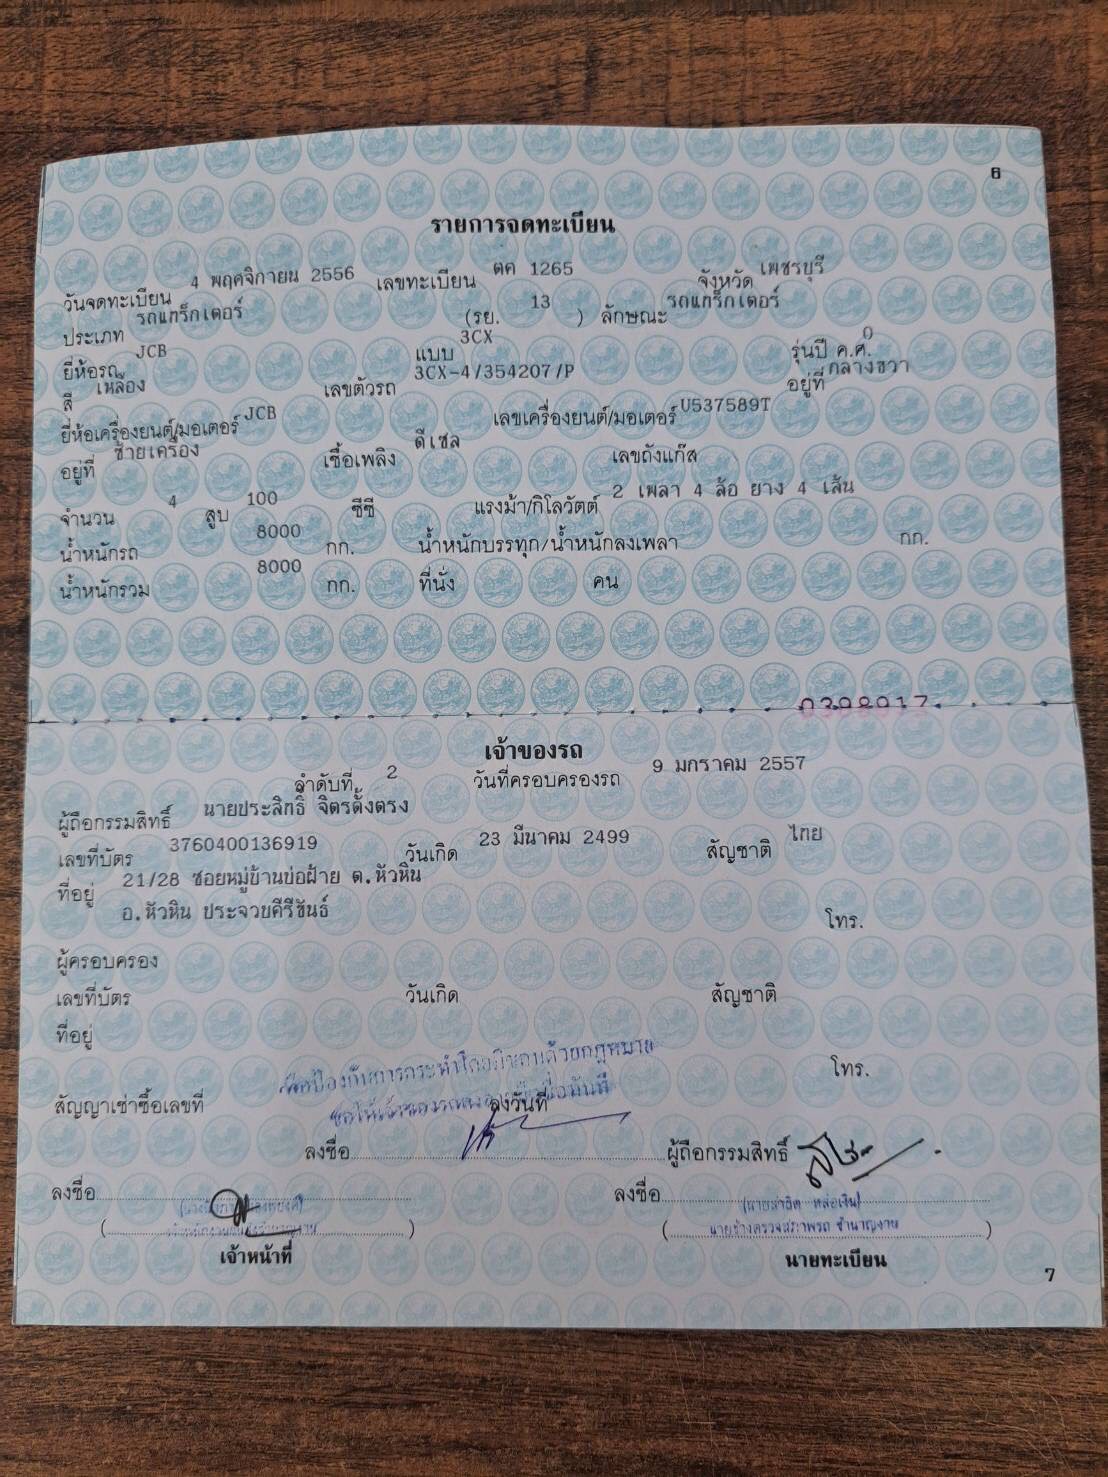 6
รายการจดทะเบียน
วันจดทะเบียน 4 พฤศจิกายน 2556 เลขทะเบียน ตค 1265 จังหวัด เพชรบุรี
ประเภท รถแทร็กเตอร์ (รย. 13 ) ลักษณะ รถแทร็กเตอร์
ยี่ห้อรถ JCB แบบ 3CX รุ่นปี ค.ศ. 0
สี เหลือง เลขตัวรถ 3CX-4/354207/P อยู่ที่ กลางขวา
ยี่ห้อเครื่องยนต์/มอเตอร์ JCB เลขเครื่องยนต์/มอเตอร์ U537589T
อยู่ที่ ซ้ายเครื่อง เชื้อเพลิง ดีเซล เลขถังแก๊ส
จำนวน 4 สูบ 100 ซีซี แรงม้า/กิโลวัตต์ 2 เพลา 4 ล้อ ยาง 4 เส้น
น้ำหนักรถ 8000 กก. น้ำหนักบรรทุก/น้ำหนักลงเพลา กก.
น้ำหนักรวม 8000 กก. ที่นั่ง คน
เจ้าของรถ
ลำดับที่ 2 วันที่ครอบครองรถ 9 มกราคม 2557
ผู้ถือกรรมสิทธิ์ นายประสิทธิ์ จิตรตั้งตรง
เลขที่บัตร 3760400136919 วันเกิด 23 มีนาคม 2499 สัญชาติ ไทย
ที่อยู่ 21/28 ซอยหมู่บ้านบ่อฝ้าย ต.หัวหิน
อ.หัวหิน ประจวบคีรีขันธ์ โทร.
ผู้ครอบครอง
เลขที่บัตร วันเกิด สัญชาติ
ที่อยู่
โทร.
สัญญาเช่าซื้อเลขที่ ลงวันที่
ลงชื่อ ผู้ถือกรรมสิทธิ์
ลงชื่อ ลงชื่อ
(นายสาธิต หล่อเงิน)
นายช่างตรวจสภาพรถ ชำนาญงาน
เจ้าหน้าที่ นายทะเบียน
7